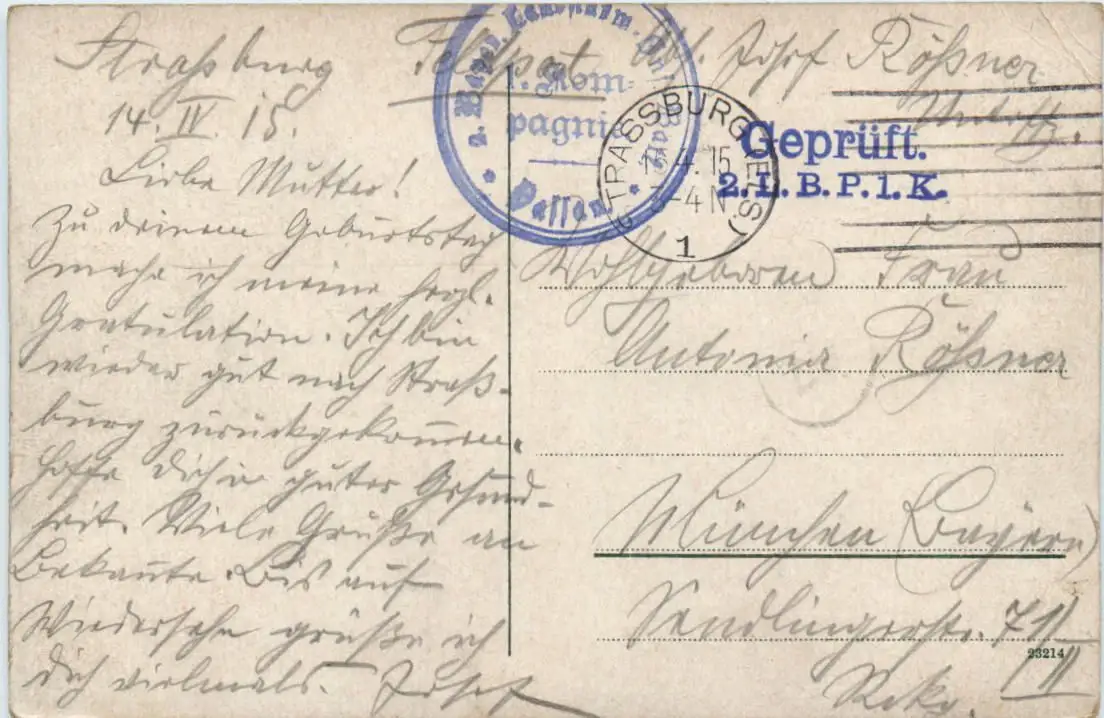 Straßburg
14. IV. 15.
Liebe Mutter!
Zu deinem Geburtstag
mache ich meine herzl.
Gratulation. Ich bin
wieder gut nach Straß-
burg zurückgekommen.
Hoffe Dich in guter Gesund-
heit. Viele Grüße an
Bekannte. Bis auf
Wiedersehn grüße ich
dich vielmals. Josef
Feldpost Josef Rößner
1. Kom-
pagnie
Passau
STRASSBURG (ELS)
4. 15
-4 N
1
Geprüft.
2. L. B. P. 1. K.
Wohlgeboren Frau
Antonia Rößner
München (Bayern)
Sendlingerstr.
23214